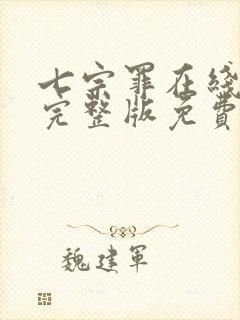 七宗罪在线
完整版免费
魏建军